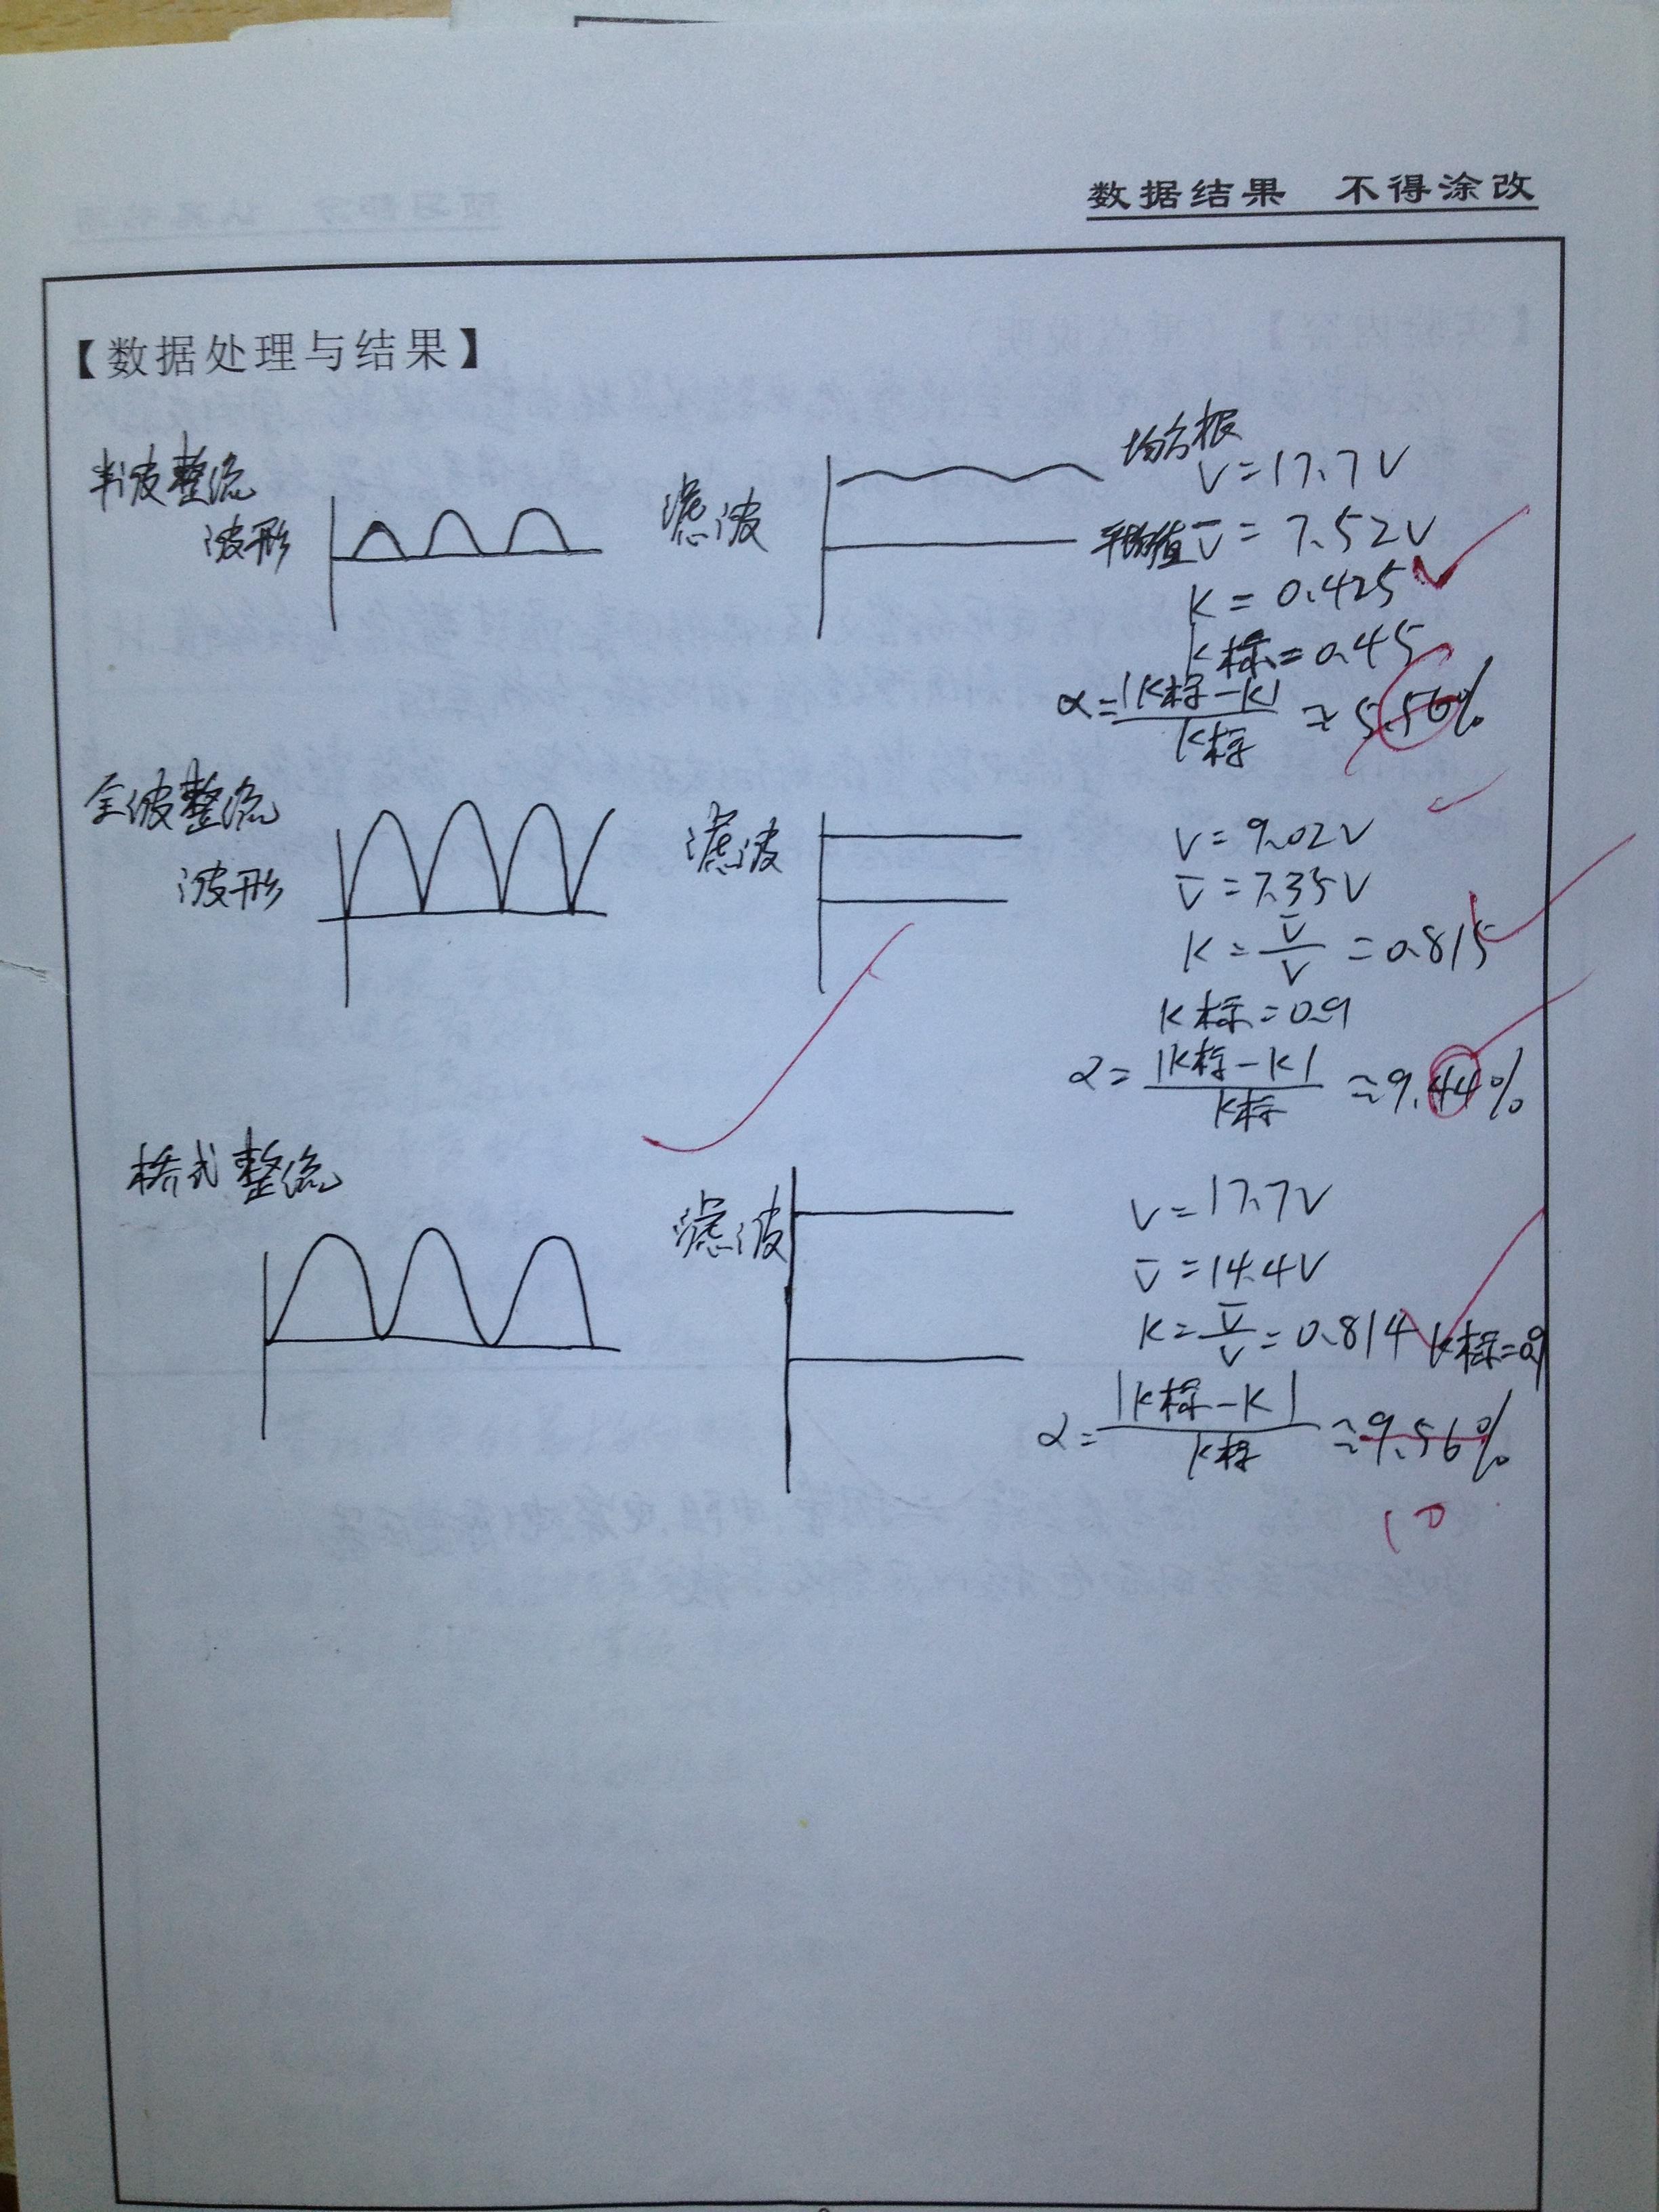 数据结果 不得涂改
【数据处理与结果】
半波整流
波形
滤波
均方根
V=17.7V
平均值 V̄=7.52V
K=0.425
K标=0.45
α=|K标-K|/K标≈5.56%
全波整流
波形
滤波
V=9.02V
V̄=7.35V
K=V̄/V=0.815
K标=0.9
α=|K标-K|/K标≈9.44%
桥式整流
滤波
V=17.7V
V̄=14.4V
K=V̄/V=0.814 K标=0.9
α=|K标-K|/K标≈9.56%
10